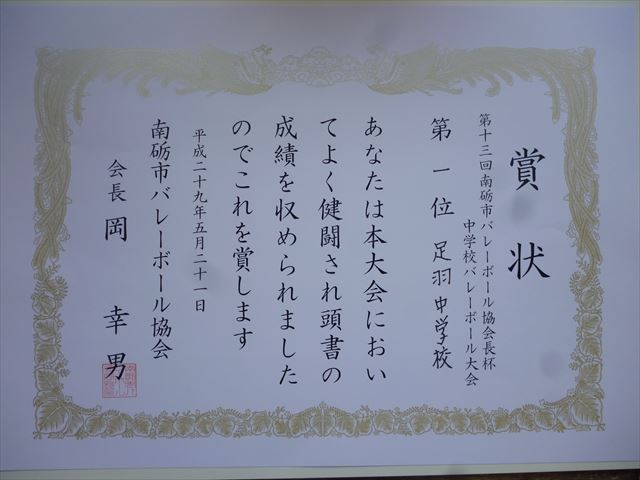 賞状
第十三回南砺市バレーボール協会長杯
中学校バレーボール大会
第一位 足羽中学校
あなたは本大会におい
てよく健闘され頭書の
成績を収められました
のでこれを賞します
平成二十九年五月二十一日
南砺市バレーボール協会
会長 岡 幸男